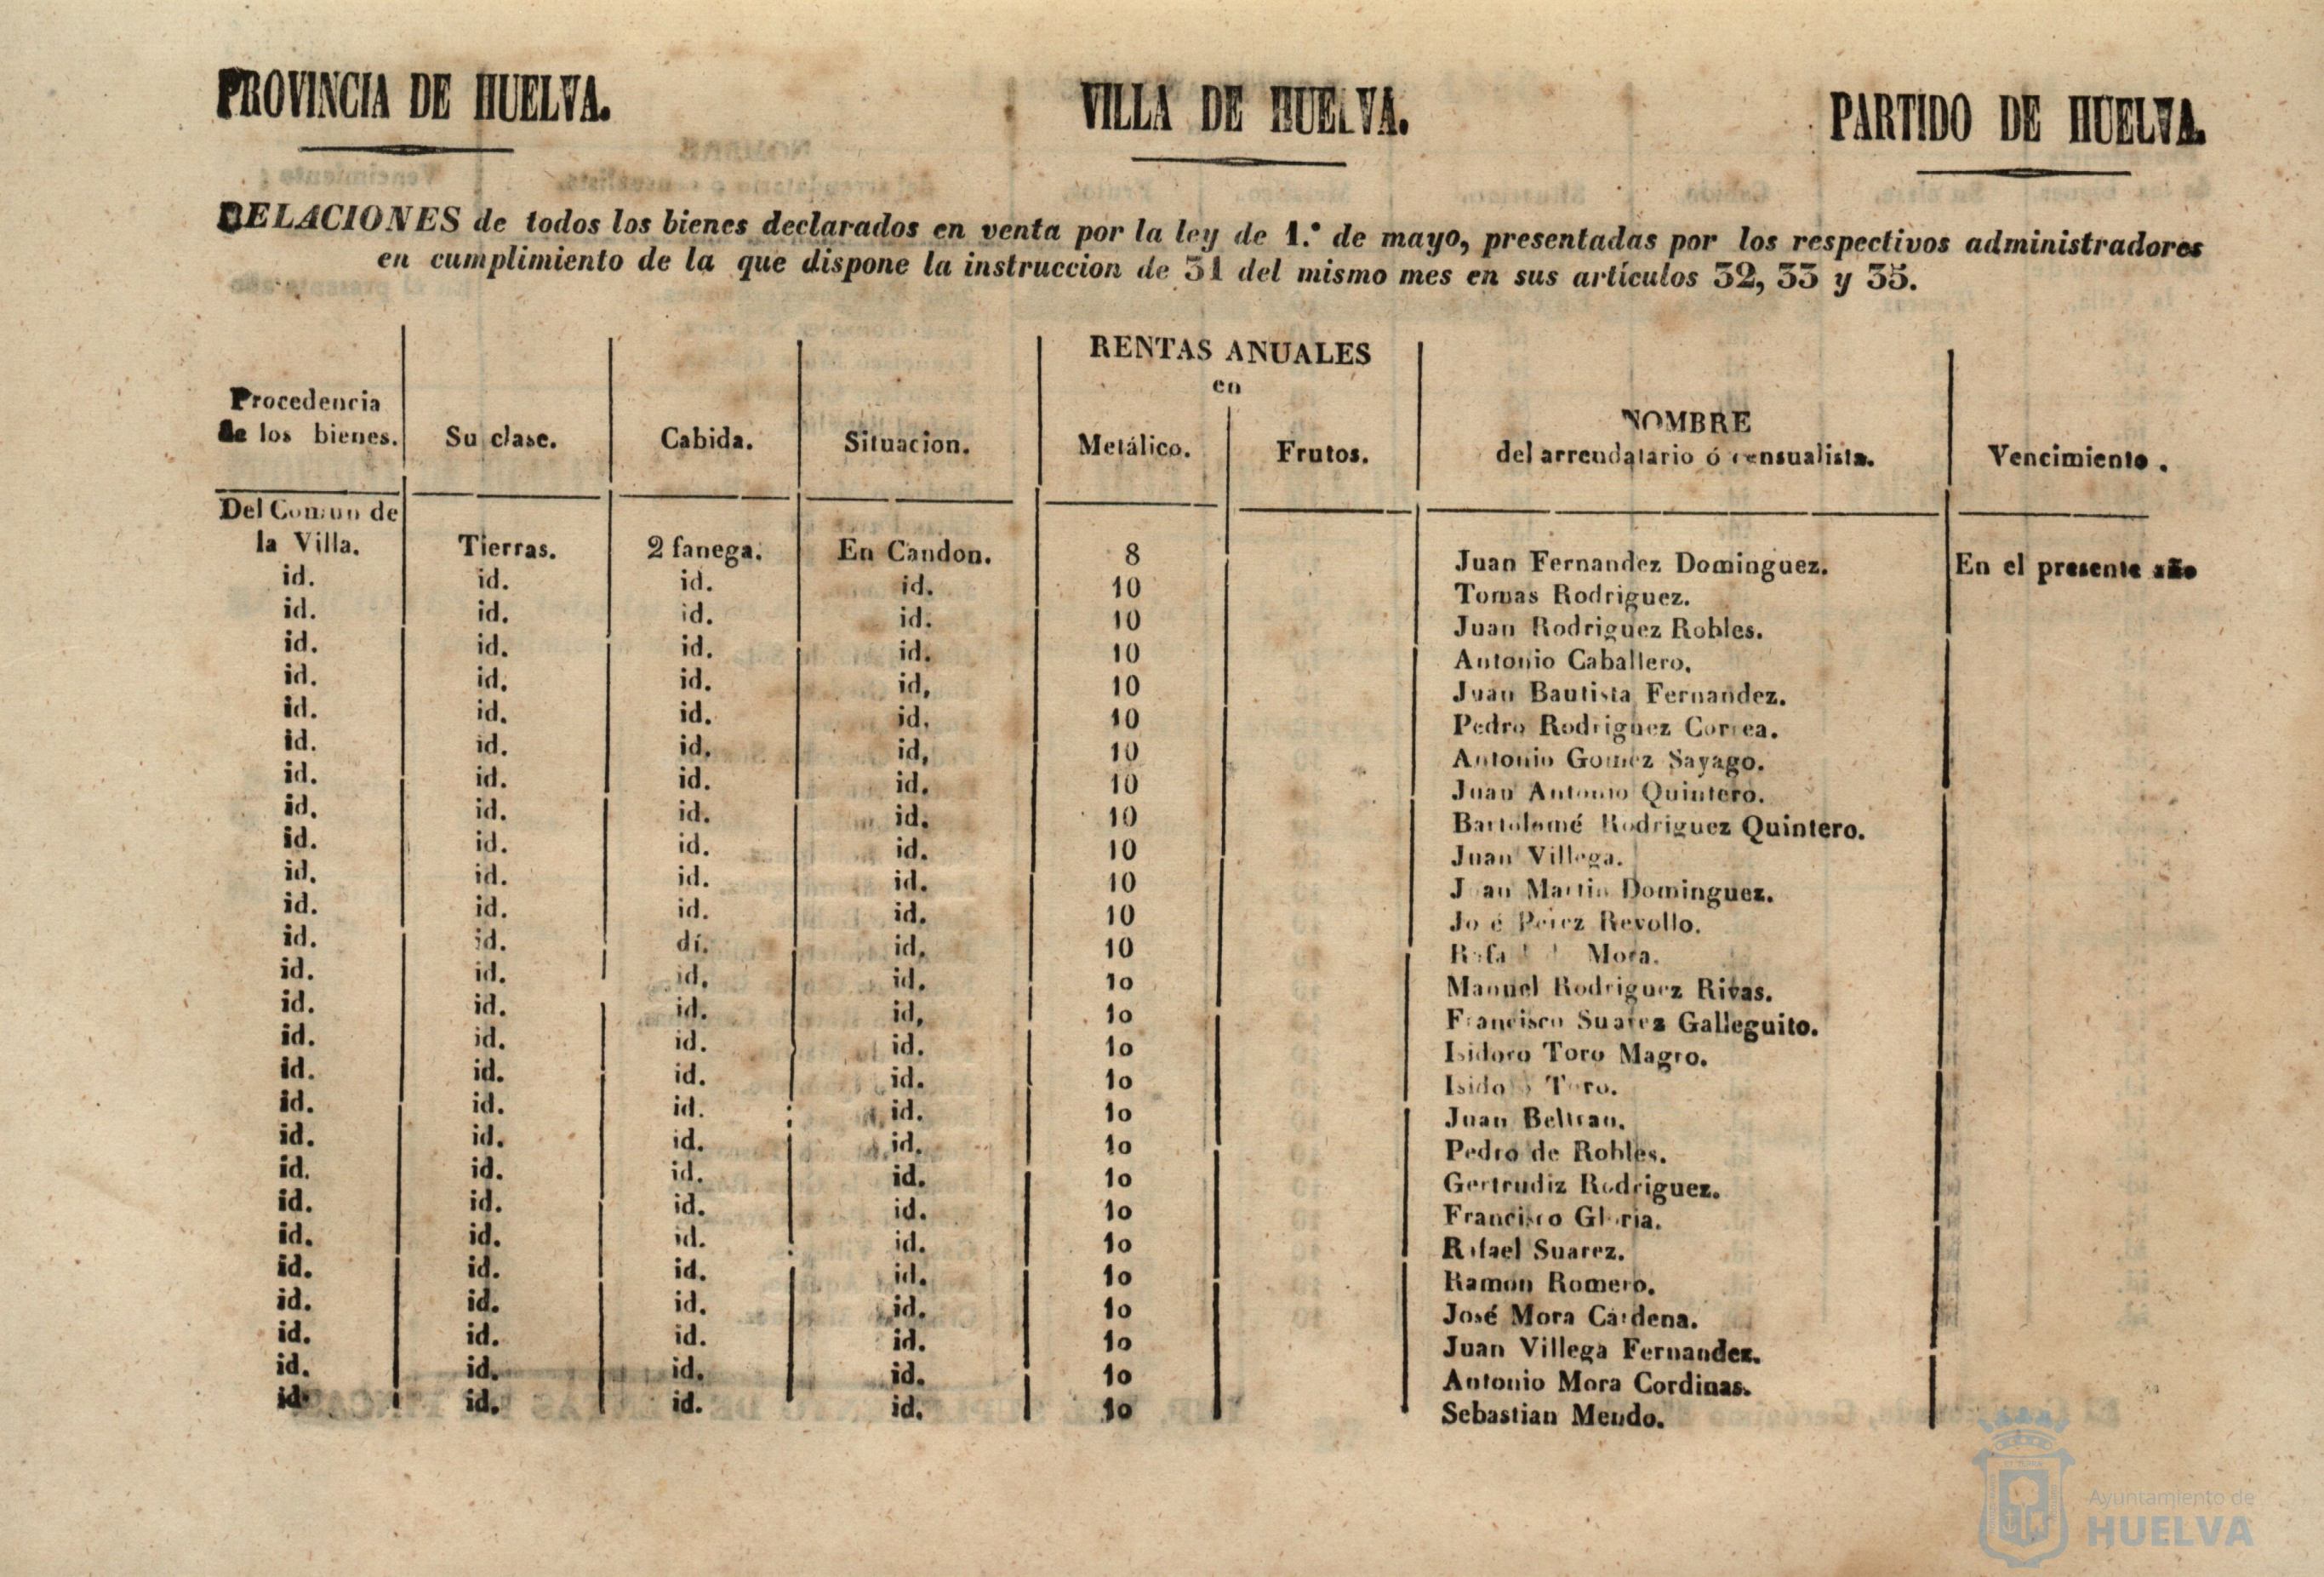 PROVINCIA DE HUELVA.
VILLA DE HUELVA.
PARTIDO DE HUELVA.
RELACIONES de todos los bienes declarados en venta por la ley de 1.º de mayo, presentadas por los respectivos administradores
en cumplimiento de la que dispone la instruccion de 31 del mismo mes en sus artículos 32, 33 y 35.
RENTAS ANUALES
en
Procedencia de los bienes. Su clase. Cabida. Situacion. Metálico. Frutos. NOMBRE del arrendatario ó censualista. Vencimiento.
Del Comun de
la Villa. Tierras. 2 fanega. En Candon. 8 Juan Fernandez Dominguez. En el presente año
id. id. id. id. 10 Tomas Rodriguez.
id. id. id. id. 10 Juan Rodriguez Robles.
id. id. id. id. 10 Antonio Caballero.
id. id. id. id, 10 Juan Bautista Fernandez.
id. id. id. id. 10 Pedro Rodriguez Correa.
id. id. id. id, 10 Antonio Gomez Sayago.
id. id. id. id. 10 Juan Antonio Quintero.
id. id. id. id. 10 Bartolomé Rodriguez Quintero.
id. id. id. id. 10 Juan Villega.
id. id. id. id. 10 Juan Martin Dominguez.
id. id. id. id. 10 José Perez Revollo.
id. id. dí. id, 10 Rafael Mora.
id. id. id. id. 10 Manuel Rodriguez Rivas.
id. id. id. id, 10 Francisco Suarez Galleguito.
id. id. id. id. 10 Isidoro Toro Magro.
id. id. id. id. 10 Isidoro Toro.
id. id. id. id. 10 Juan Beltran.
id. id. id. id. 10 Pedro de Robles.
id. id. id. id. 10 Gertrudiz Rodriguez.
id. id. id. id. 10 Francisco Gloria.
id. id. id. id. 10 Rafael Suarez.
id. id. id. id. 10 Ramon Romero.
id. id. id. id. 10 José Mora Cardena.
id. id. id. id. 10 Juan Villega Fernandez.
id. id. id. id. 10 Antonio Mora Cordinas.
id. id. id. id. 10 Sebastian Mendo.
Ayuntamiento de
HUELVA